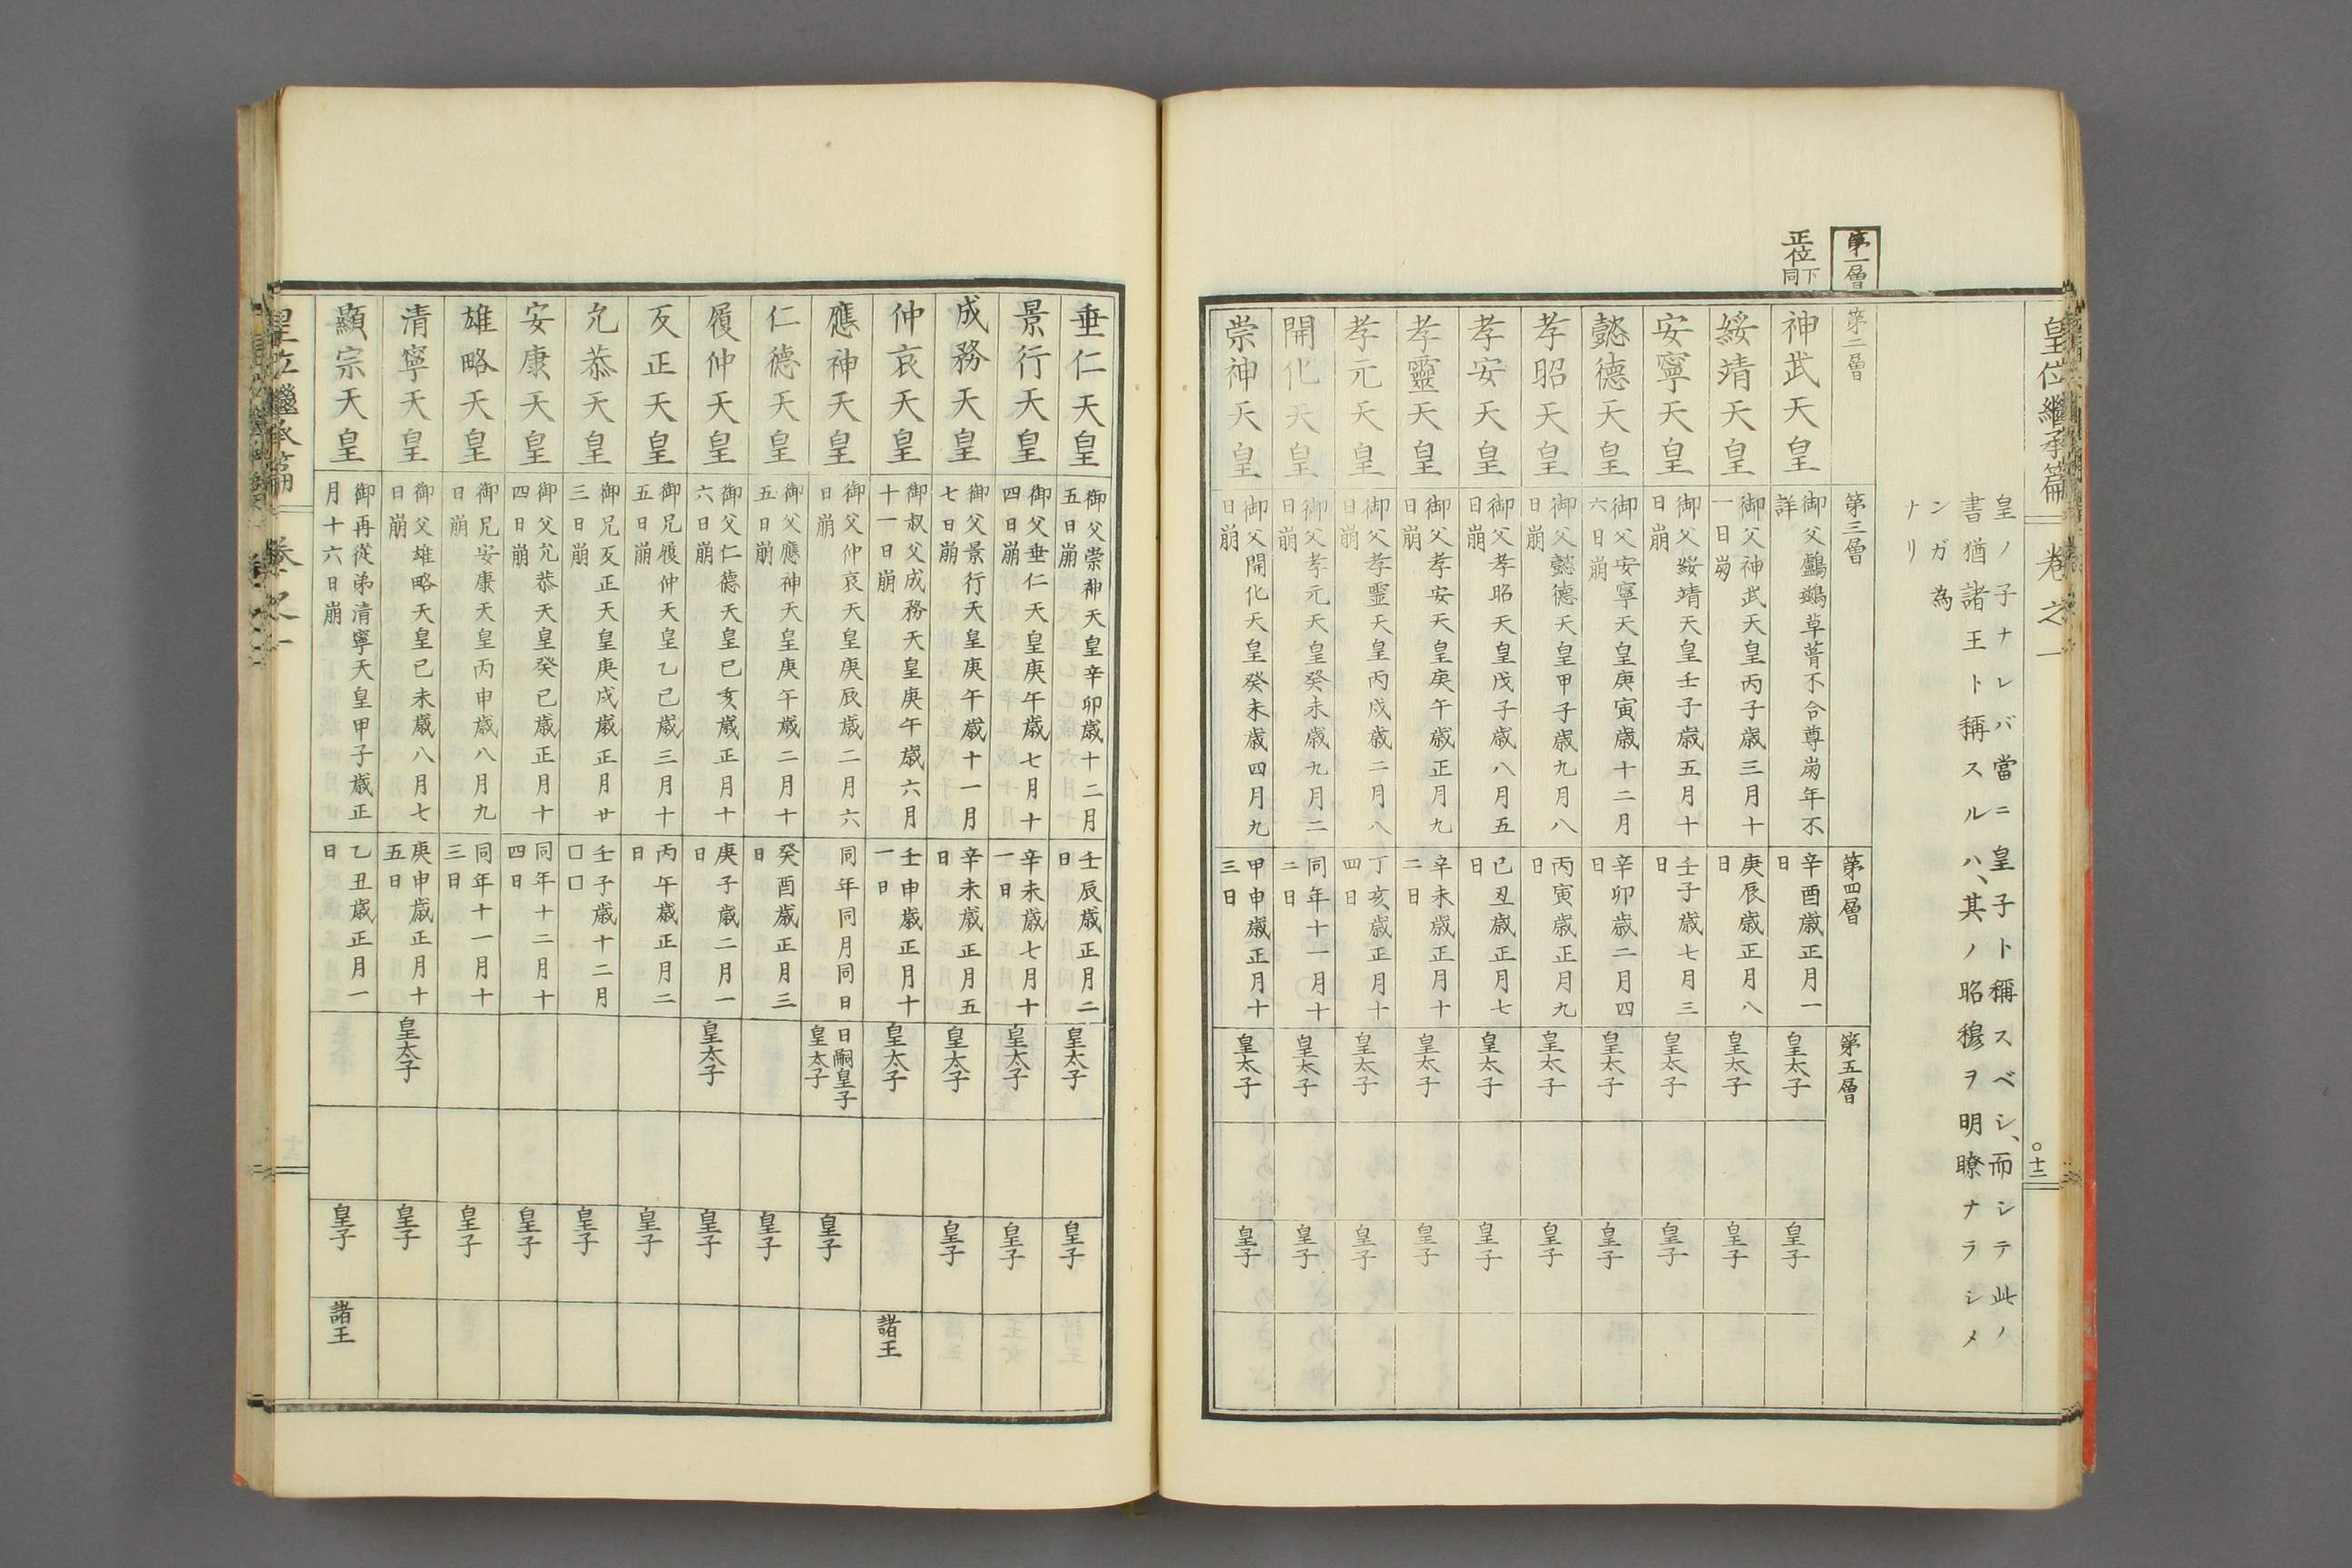 皇位繼承篇 卷之一 〇十二
皇ノ子ナレバ當ニ皇子ト稱スベシ、而シテ此ノ
書猶諸王ト稱スルハ、其ノ昭穆ヲ明瞭ナラシメ
ンガ為
ナリ
第一層
第二層 第三層 第四層 第五層
正位下同
神武天皇 御父鸕鷀草葺不合尊崩年不詳 辛酉歳正月一日 皇太子 皇子
綏靖天皇 御父神武天皇丙子歳三月十一日崩 庚辰歳正月八日 皇太子 皇子
安寧天皇 御父綏靖天皇壬子歳五月十日崩 壬子歳七月三日 皇太子 皇子
懿德天皇 御父安寧天皇庚寅歳十二月六日崩 辛卯歳二月四日 皇太子 皇子
孝昭天皇 御父懿德天皇甲子歳九月八日崩 丙寅歳正月九日 皇太子 皇子
孝安天皇 御父孝昭天皇戊子歳八月五日崩 己丑歳正月七日 皇太子 皇子
孝靈天皇 御父孝安天皇庚午歳正月九日崩 辛未歳正月十二日 皇太子 皇子
孝元天皇 御父孝靈天皇丙戌歳二月八日崩 丁亥歳正月十四日 皇太子 皇子
開化天皇 御父孝元天皇癸未歳九月二日崩 同年十一月十二日 皇太子 皇子
崇神天皇 御父開化天皇癸未歳四月九日崩 甲申歳正月十三日 皇太子 皇子
垂仁天皇 御父崇神天皇辛卯歳十二月五日崩 壬辰歳正月二日 皇太子 皇子
景行天皇 御父垂仁天皇庚午歳七月十四日崩 辛未歳七月十一日 皇太子 皇子
成務天皇 御父景行天皇庚午歳十一月七日崩 辛未歳正月五日 皇太子 皇子
仲哀天皇 御叔父成務天皇庚午歳六月十一日崩 壬申歳正月十一日 皇太子 諸王
應神天皇 御父仲哀天皇庚辰歳二月六日崩 同年同月同日 日嗣皇子皇太子 皇子
仁德天皇 御父應神天皇庚午歳二月十五日崩 癸酉歳正月三日 皇子
履仲天皇 御父仁德天皇己亥歳正月十六日崩 庚子歳二月一日 皇太子 皇子
反正天皇 御兄履仲天皇乙巳歳三月十五日崩 丙午歳正月二日 皇子
允恭天皇 御兄反正天皇庚戌歳正月廿三日崩 壬子歳十二月□□ 皇子
安康天皇 御父允恭天皇癸巳歳正月十四日崩 同年十二月十四日 皇子
雄略天皇 御兄安康天皇丙申歳八月九日崩 同年十一月十三日 皇子
清寧天皇 御父雄略天皇己未歳八月七日崩 庚申歳正月十五日 皇太子 皇子
顯宗天皇 御再從弟清寧天皇甲子歳正月十六日崩 乙丑歳正月一日 皇子 諸王
皇位繼承篇 卷之一